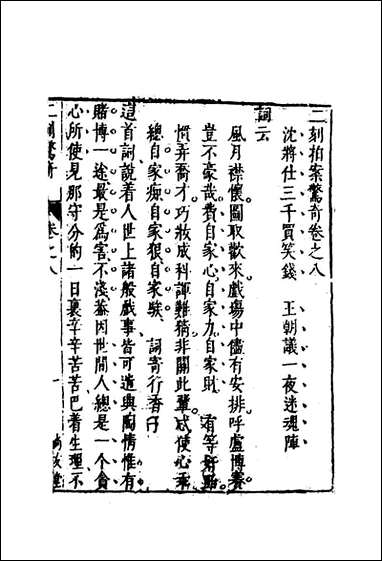 二刻拍案驚奇卷之八
沈將仕三千買笑錢 王朝議一夜迷魂陣
詞云
風月襟懷圖取歡來戲場中儘有安排呼盧博賽
豈不豪哉費自家心自家力自家財 有等奸黠
慣弄喬才巧妝成科諢難猜非關此輩忒使心乖
總自家癡自家狠自家騃 詞寄行香子
這首詞說着人世上諸般戲事皆可遣興陶情惟有
賭博一途最是爲害不淺葢因世間人總是一個貪
心所使見那守分的一日裏辛辛苦苦巴着生理不
二刻驚奇 卷之八 一 尚友堂